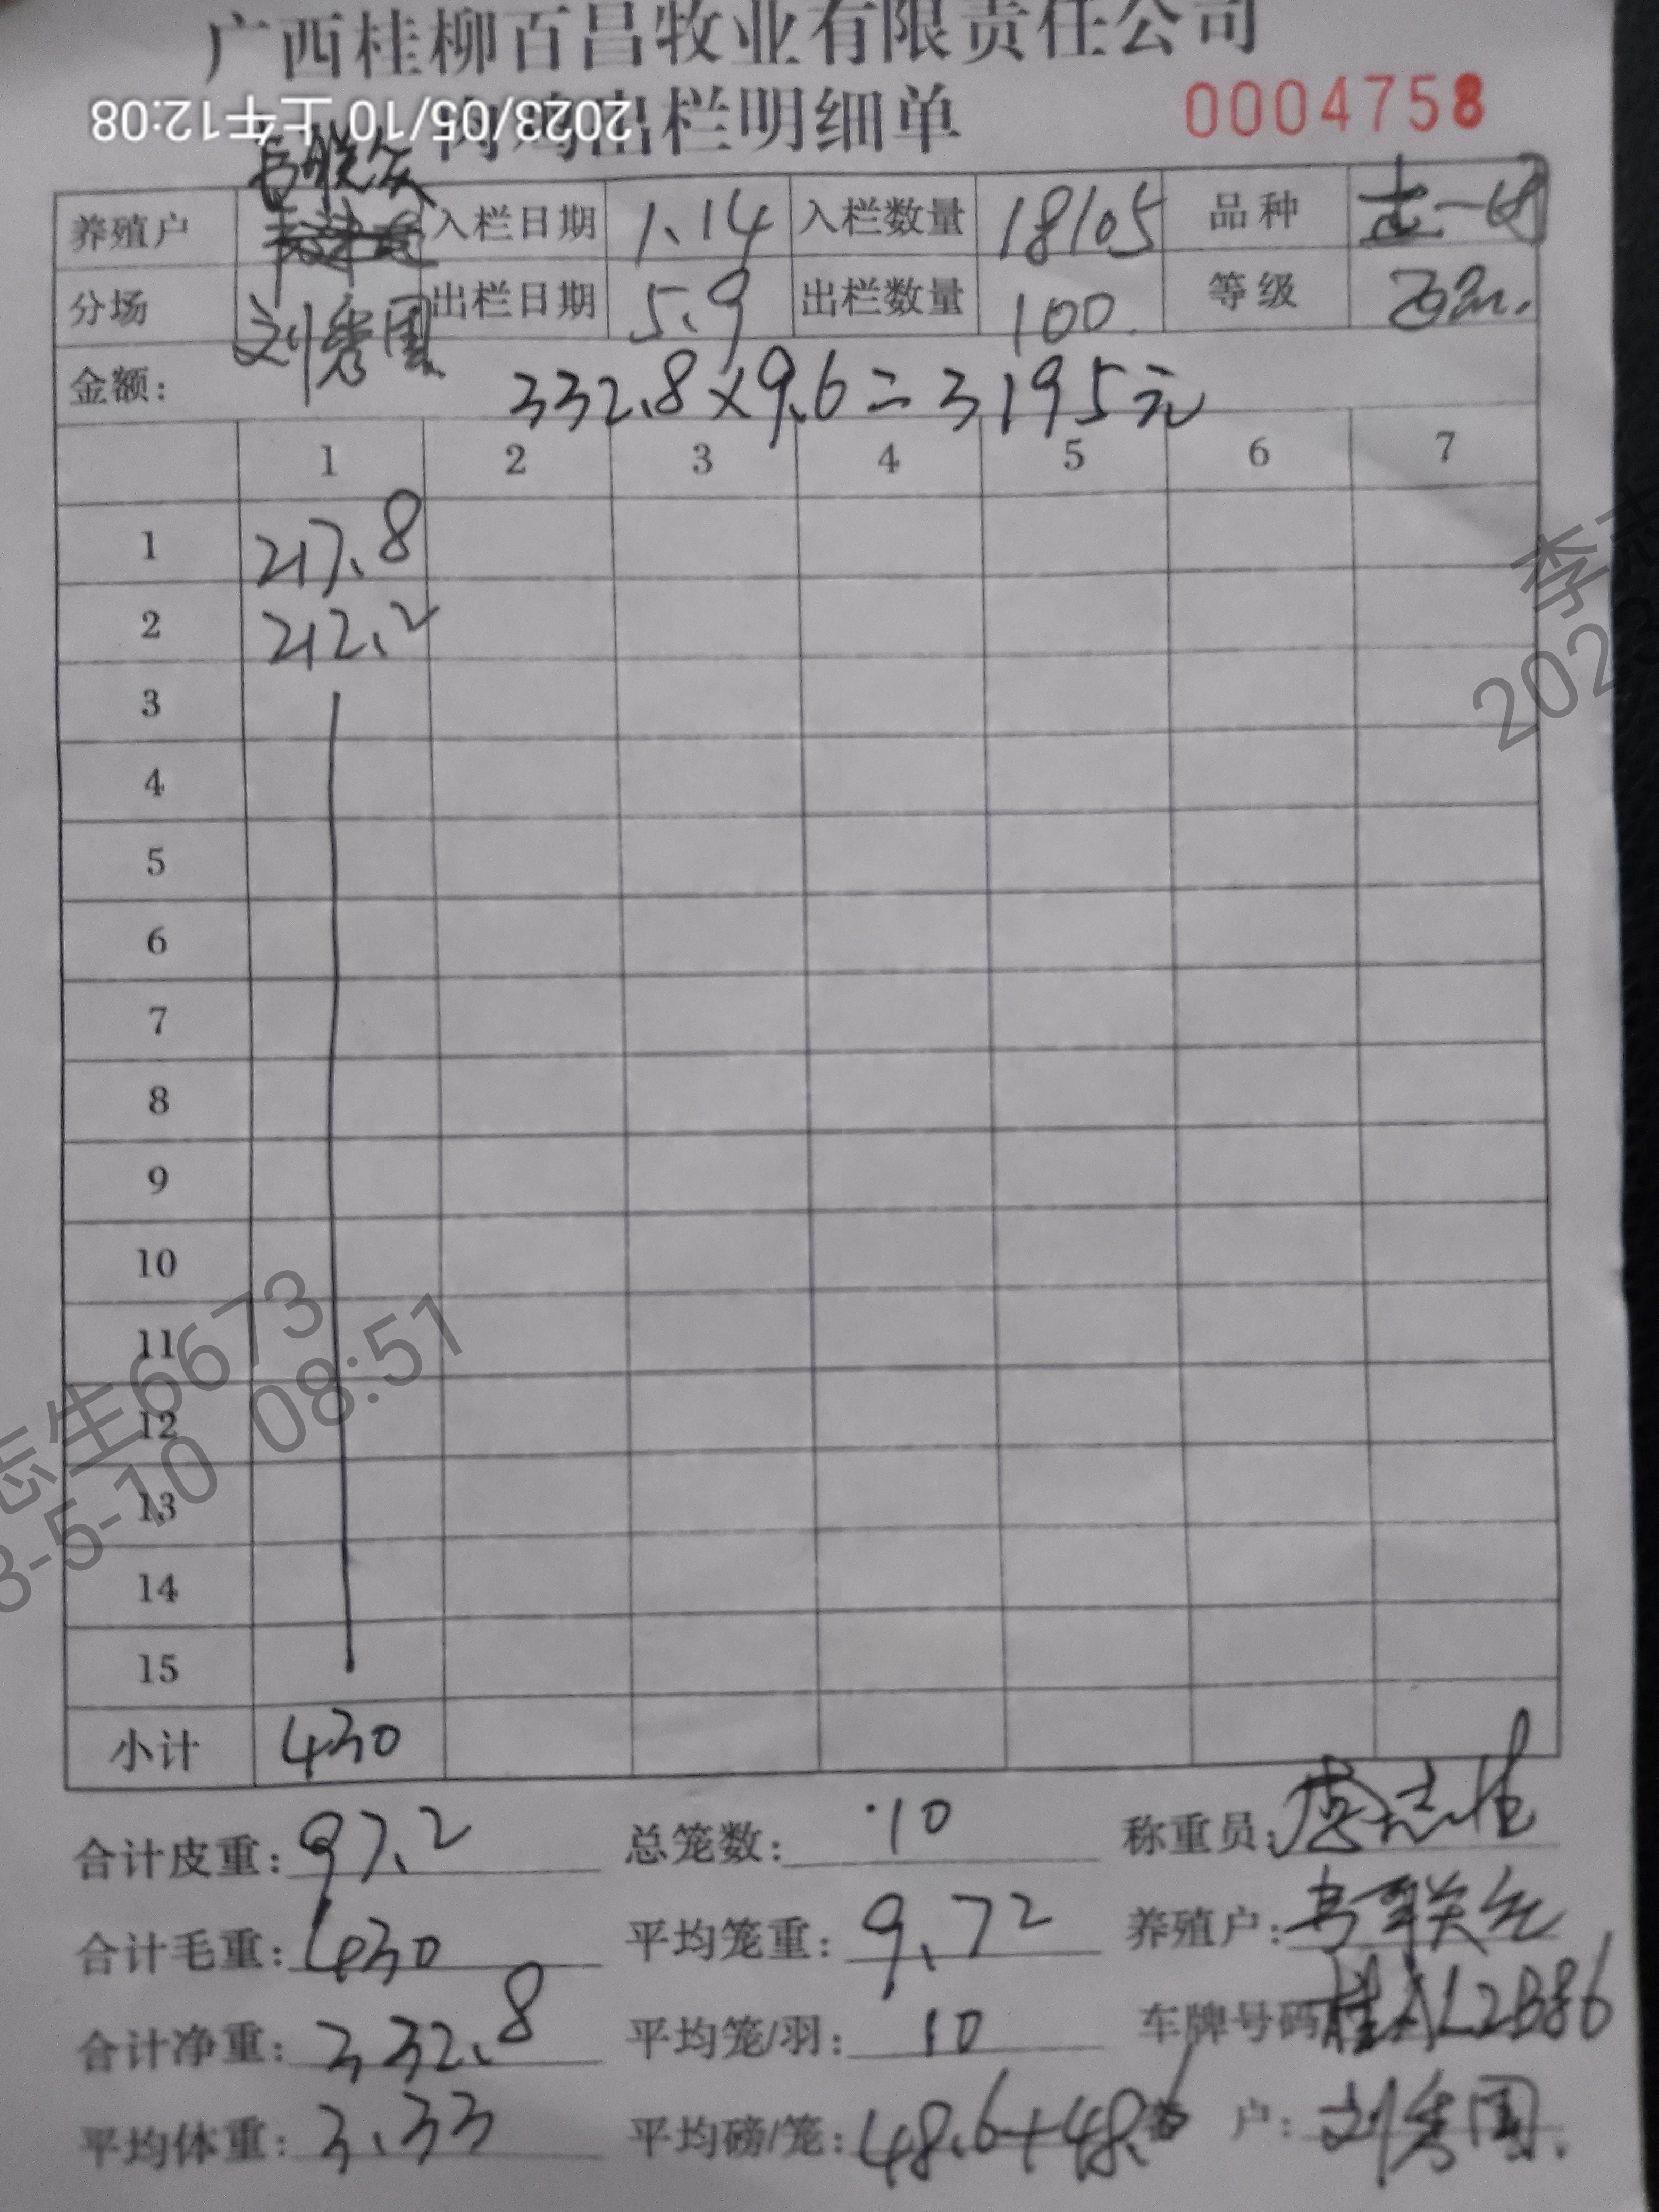 广西桂柳百昌牧业有限责任公司
出栏明细单 0004758
2023/05/10 上午12:08
养殖户 入栏日期 1.14 入栏数量 18105 品种
分场 刘秀国 出栏日期 5.9 出栏数量 100 等级
金额: 332.8×9.6=3195元
1 2 3 4 5 6 7
1 217.8
2 212.2
3
4
5
6
7
8
9
10
11
12
13
14
15
小计 430
志生6673
3-5-10 08:51
202
合计皮重: 97.2 总笼数: 10 称重员:
合计毛重: 430 平均笼重: 9.72 养殖户: 韦联
合计净重: 332.8 平均笼/羽: 10 车牌号码 桂AL2B86
平均体重: 3.33 平均磅/笼: 48.6+48.6 户: 刘秀国